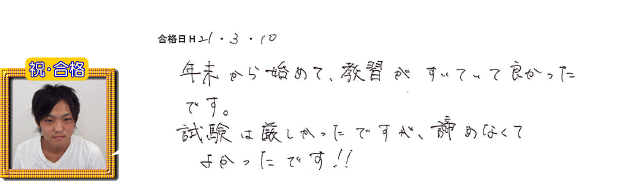 合格日H21・3・10
祝・合格
年末から始めて、教習がすいていて良かった
です。
試験は厳しかったですが、諦めなくて
よかったです!!